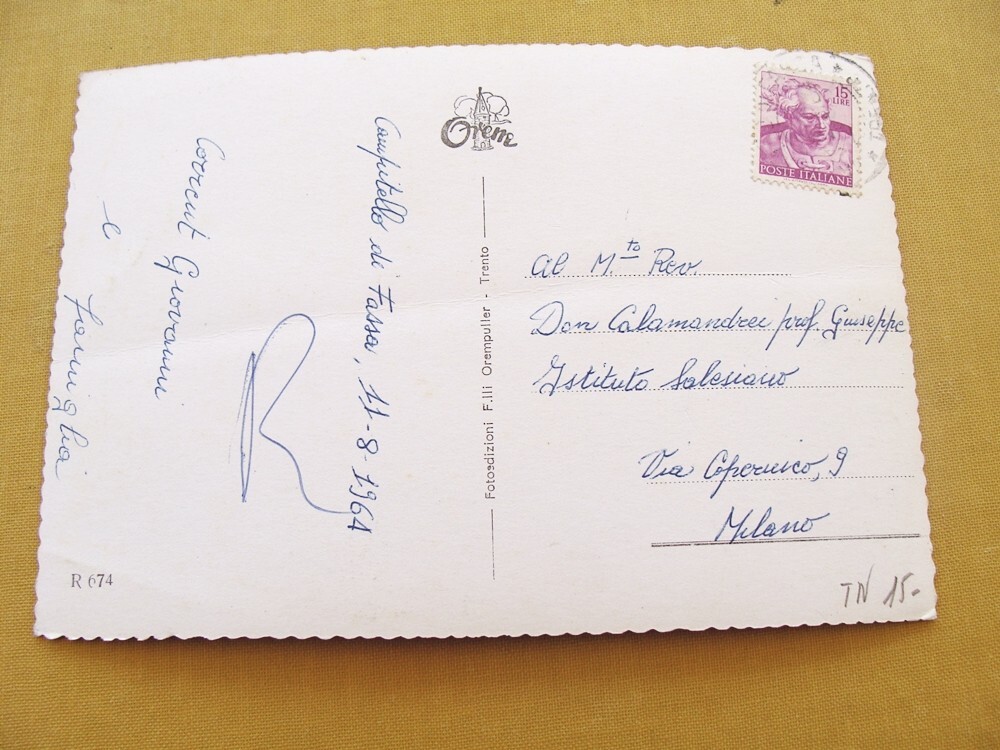 Campitello di Fassa, 11-8-1964
Giovanni
e
famiglia
R 674
Orem
Fotoedizioni F.lli Orempuller - Trento
15
LIRE
POSTE ITALIANE
Al M.to Rev.
Don Calamandrei prof. Giuseppe
Istituto Salesiano
Via Copernico, 9
Milano
TN 15-